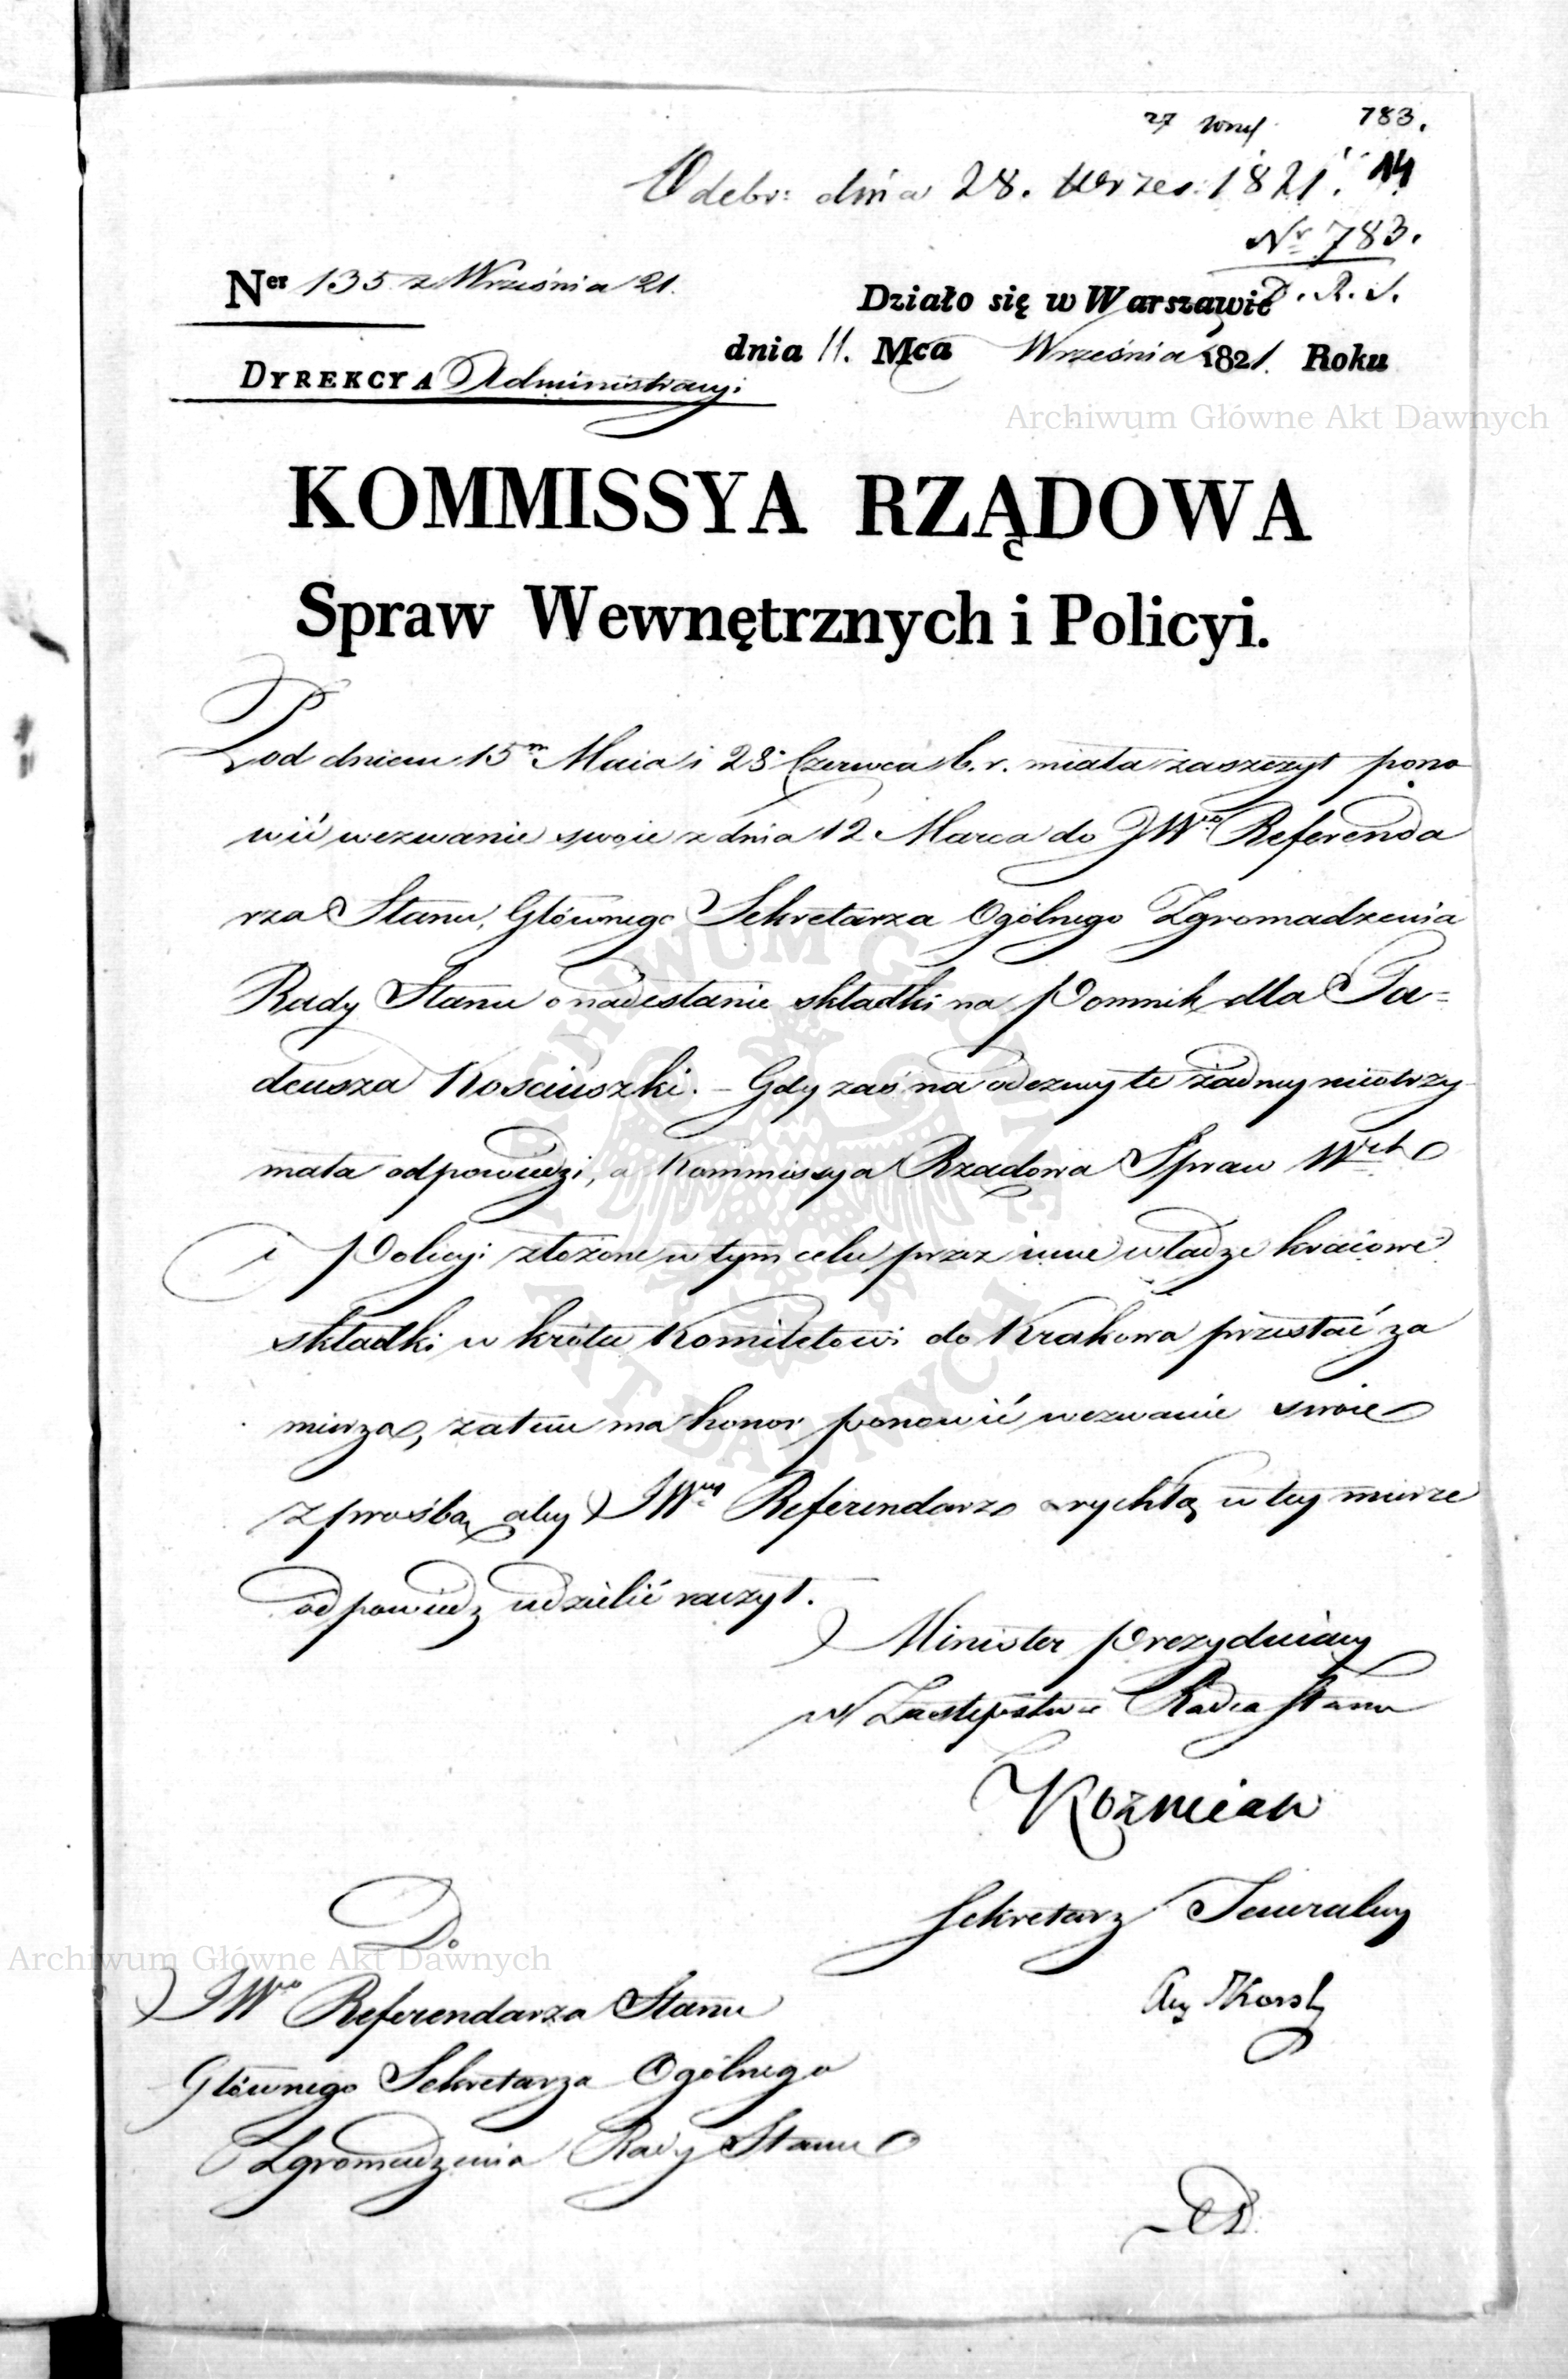 27 783.
Odebr: dnia 28. Wrześ: 1821. 14
Nr 783.
D. R. S.
Ner 135 z Września 21.
Działo się w Warszawie
dnia 11. Mca Września 1821. Roku
DYREKCYA Administracyi
KOMMISSYA RZĄDOWA
Spraw Wewnętrznych i Policyi.
Pod dniem 15m Maia i 28 Czerwca b. r. miała zaszczyt pono
wić wezwanie swoie z dnia 12 Marca do JWgo Referenda
rza Stanu, Głównego Sekretarza Ogólnego Zgromadzenia
Rady Stanu o nadesłanie składki na Pomnik dla Ta=
deusza Kosciuszki. – Gdy zaś na odezwy te żadney nieotrzy
mała odpowiedzi, a Kommissya Rządowa Spraw Wch
i Policyi złożone w tym celu przez inne władze kraiowe
składki w krótce Komitetowi do Krakowa przesłać za
mierza, zatem ma honor ponowić wezwanie swoie
z prośbą aby JWny Referendarz rychłą w tey mierze
odpowiedź udzielić raczył.
Minister Prezyduiący
w Zastępstwie Radca Stanu
Koźmian
Sekretarz Jeneralny
Do
JWgo Referendarza Stanu
Głównego Sekretarza Ogólnego
Zgromadzenia Rady Stanu
Archiwum Główne Akt Dawnych
Archiwum Główne Akt Dawnych
ARCHIWUM GŁÓWNE
AKT DAWNYCH